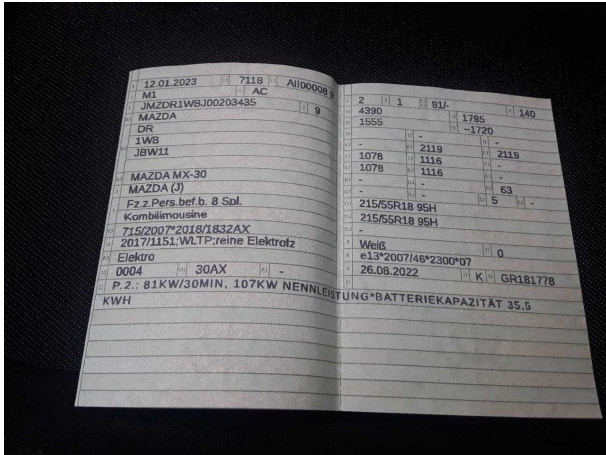 12.01.2023 7118 AII00008 9
M1 AC
JMZDR1WBJ00203435 9
MAZDA
DR
1W8
JBW11
MAZDA MX-30
MAZDA (J)
Fz.z.Pers.bef.b. 8 Spl.
Kombilimousine
715/2007*2018/1832AX
2017/1151;WLTP;reine Elektrofz
Elektro
0004 30AX -
P.2.: 81KW/30MIN, 107KW NENNLEISTUNG*BATTERIEKAPAZITÄT 35,5
KWH
2 1 81/- 140
4390 1795
1555 –1720
- -
- 2119 2119
1078 1116 -
1078 1116 -
- - 63
- - 5 -
215/55R18 95H
215/55R18 95H
-
Weiß 0
e13*2007/46*2300*07
26.08.2022 K GR181778